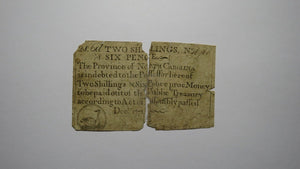 TWO SHILLINGS, N
& SIX PENCE
The Province of NORTH CAROLINA
is indebted to the Possessor hereof
Two Shillings & Six Pence proc Money
to be paid out of the Public Treasury
according to Act of Assembly passed
Dec